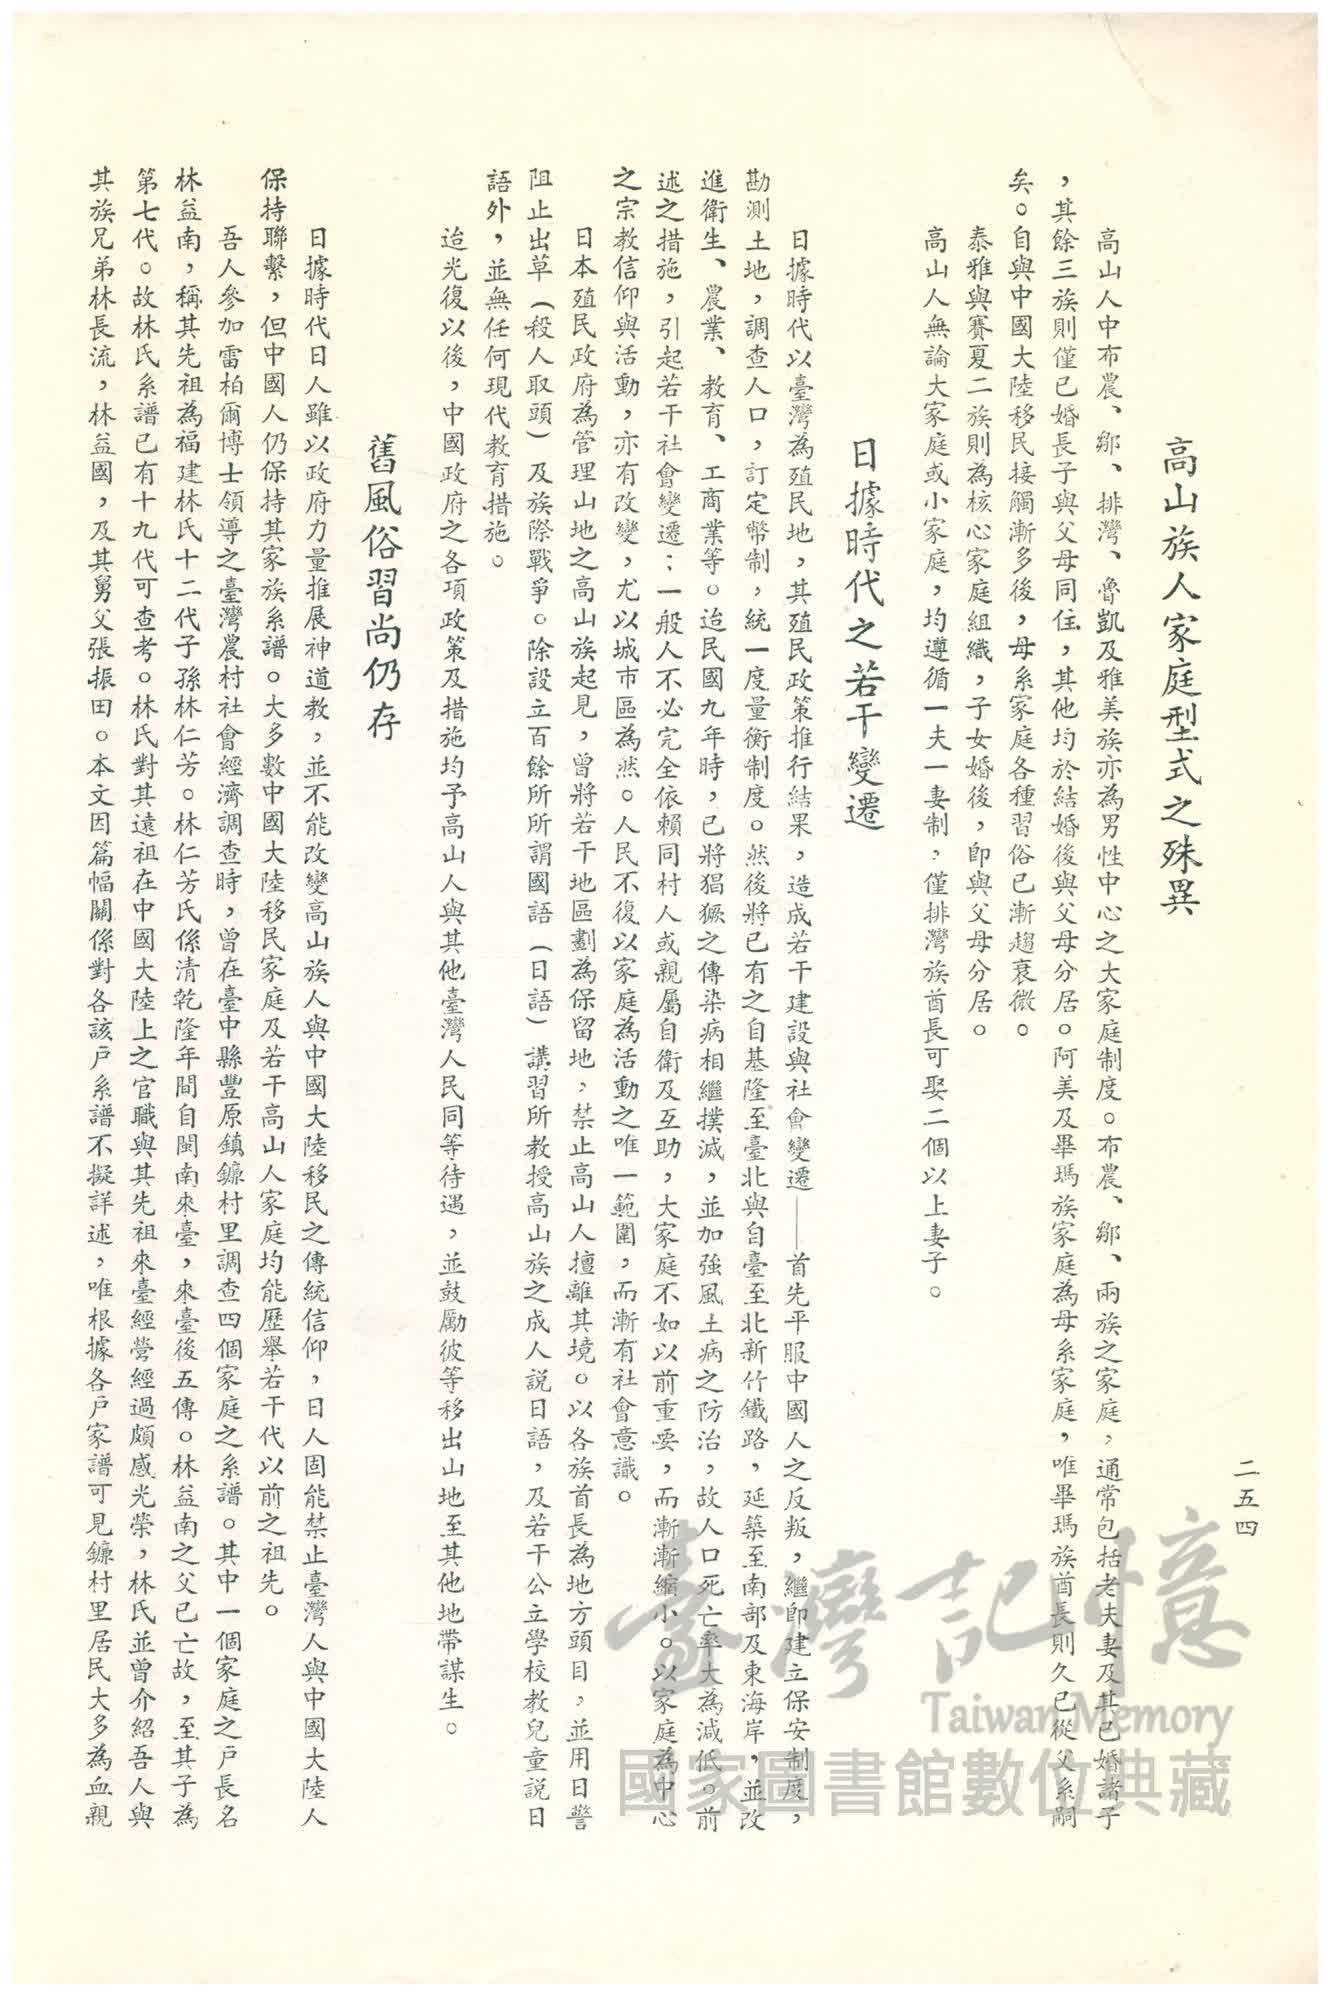 二五四
高山族人家庭型式之殊異
高山人中布農、鄒、排灣、魯凱及雅美族亦為男性中心之大家庭制度。布農、鄒、兩族之家庭，通常包括老夫妻及其已婚諸子
，其餘三族則僅已婚長子與父母同住，其他均於結婚後與父母分居。阿美及畢瑪族家庭為母系家庭，唯畢瑪族酋長則久已從父系嗣
矣。自與中國大陸移民接觸漸多後，母系家庭各種習俗已漸趨衰微。
泰雅與賽夏二族則為核心家庭組織，子女婚後，即與父母分居。
高山人無論大家庭或小家庭，均遵循一夫一妻制，僅排灣族酋長可娶二個以上妻子。
日據時代之若干變遷
日據時代以臺灣為殖民地，其殖民政策推行結果，造成若干建設與社會變遷——首先平服中國人之反叛，繼即建立保安制度，
勘測土地，調查人口，訂定幣制，統一度量衡制度。然後將已有之自基隆至臺北與自臺至北新竹鐵路，延築至南部及東海岸，並改
進衛生、農業、教育、工商業等。迨民國九年時，已將猖獗之傳染病相繼撲滅，並加強風土病之防治，故人口死亡率大為減低。前
述之措施，引起若干社會變遷：一般人不必完全依賴同村人或親屬自衛及互助，大家庭不如以前重要，而漸漸縮小。以家庭為中心
之宗教信仰與活動，亦有改變，尤以城市區為然。人民不復以家庭為活動之唯一範圍，而漸有社會意識。
日本殖民政府為管理山地之高山族起見，曾將若干地區劃為保留地，禁止高山人擅離其境。以各族首長為地方頭目，並用日警
阻止出草（殺人取頭）及族際戰爭。除設立百餘所所謂國語（日語）講習所教授高山族之成人說日語，及若干公立學校教兒童說日
語外，並無任何現代教育措施。
迨光復以後，中國政府之各項政策及措施均予高山人與其他臺灣人民同等待遇，並鼓勵彼等移出山地至其他地帶謀生。
舊風俗習尚仍存
日據時代日人雖以政府力量推展神道教，並不能改變高山族人與中國大陸移民之傳統信仰，日人固能禁止臺灣人與中國大陸人
保持聯繫，但中國人仍保持其家族系譜。大多數中國大陸移民家庭及若干高山人家庭均能歷舉若干代以前之祖先。
吾人參加雷柏爾博士領導之臺灣農村社會經濟調查時，曾在臺中縣豐原鎮鐮村里調查四個家庭之系譜。其中一個家庭之戶長名
林益南，稱其先祖為福建林氏十二代子孫林仁芳。林仁芳氏係清乾隆年間自閩南來臺，來臺後五傳。林益南之父已亡故，至其子為
第七代。故林氏系譜已有十九代可查考。林氏對其遠祖在中國大陸上之官職與其先祖來臺經營經過頗感光榮，林氏並曾介紹吾人與
其族兄弟林長流，林益國，及其舅父張振田。本文因篇幅關係對各該戶系譜不擬詳述，唯根據各戶家譜可見鐮村里居民大多為血親
臺灣記憶
Taiwan Memory
國家圖書館數位典藏